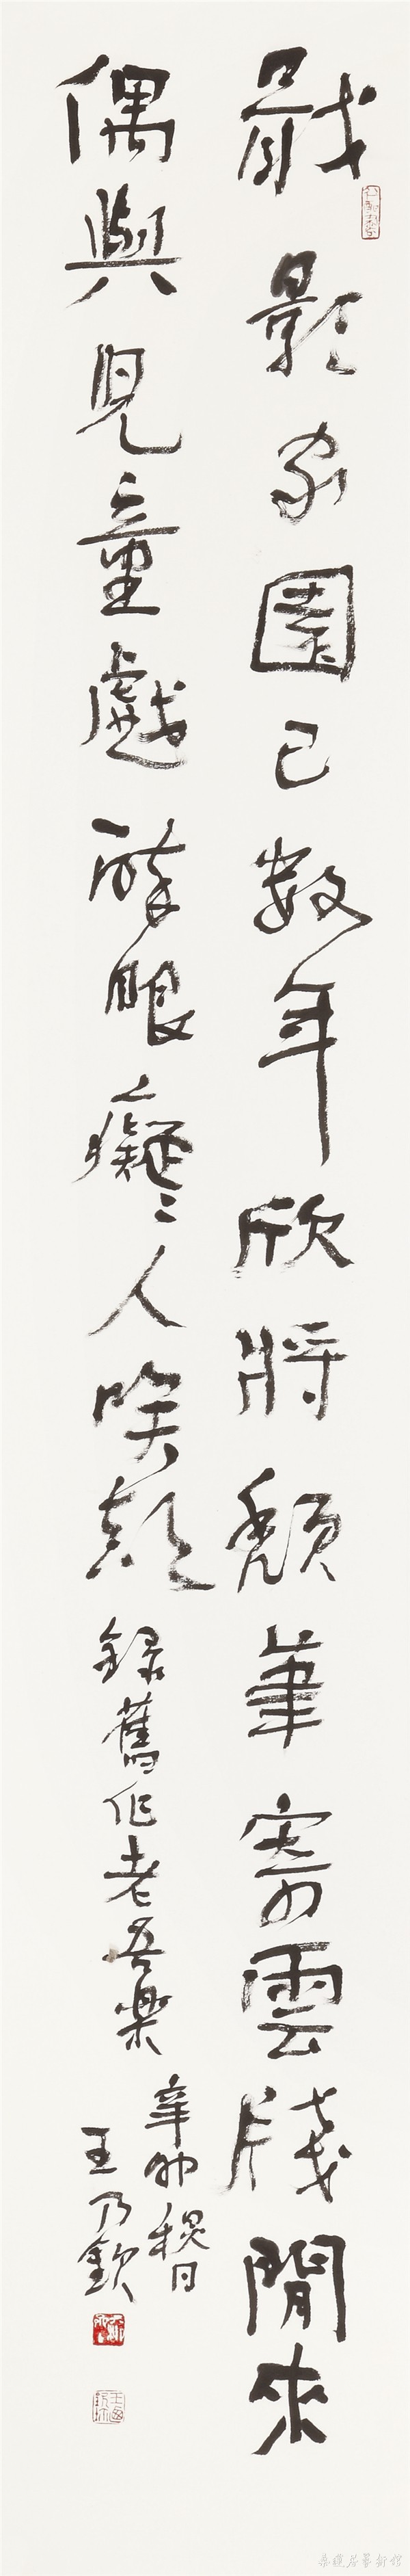 戢影家園已數年欣將頹筆寄雲牋閒來
偶與兒童戲醉眼癡〻人笑顛
錄舊作老吾樂
辛卯穐日
王乃欽